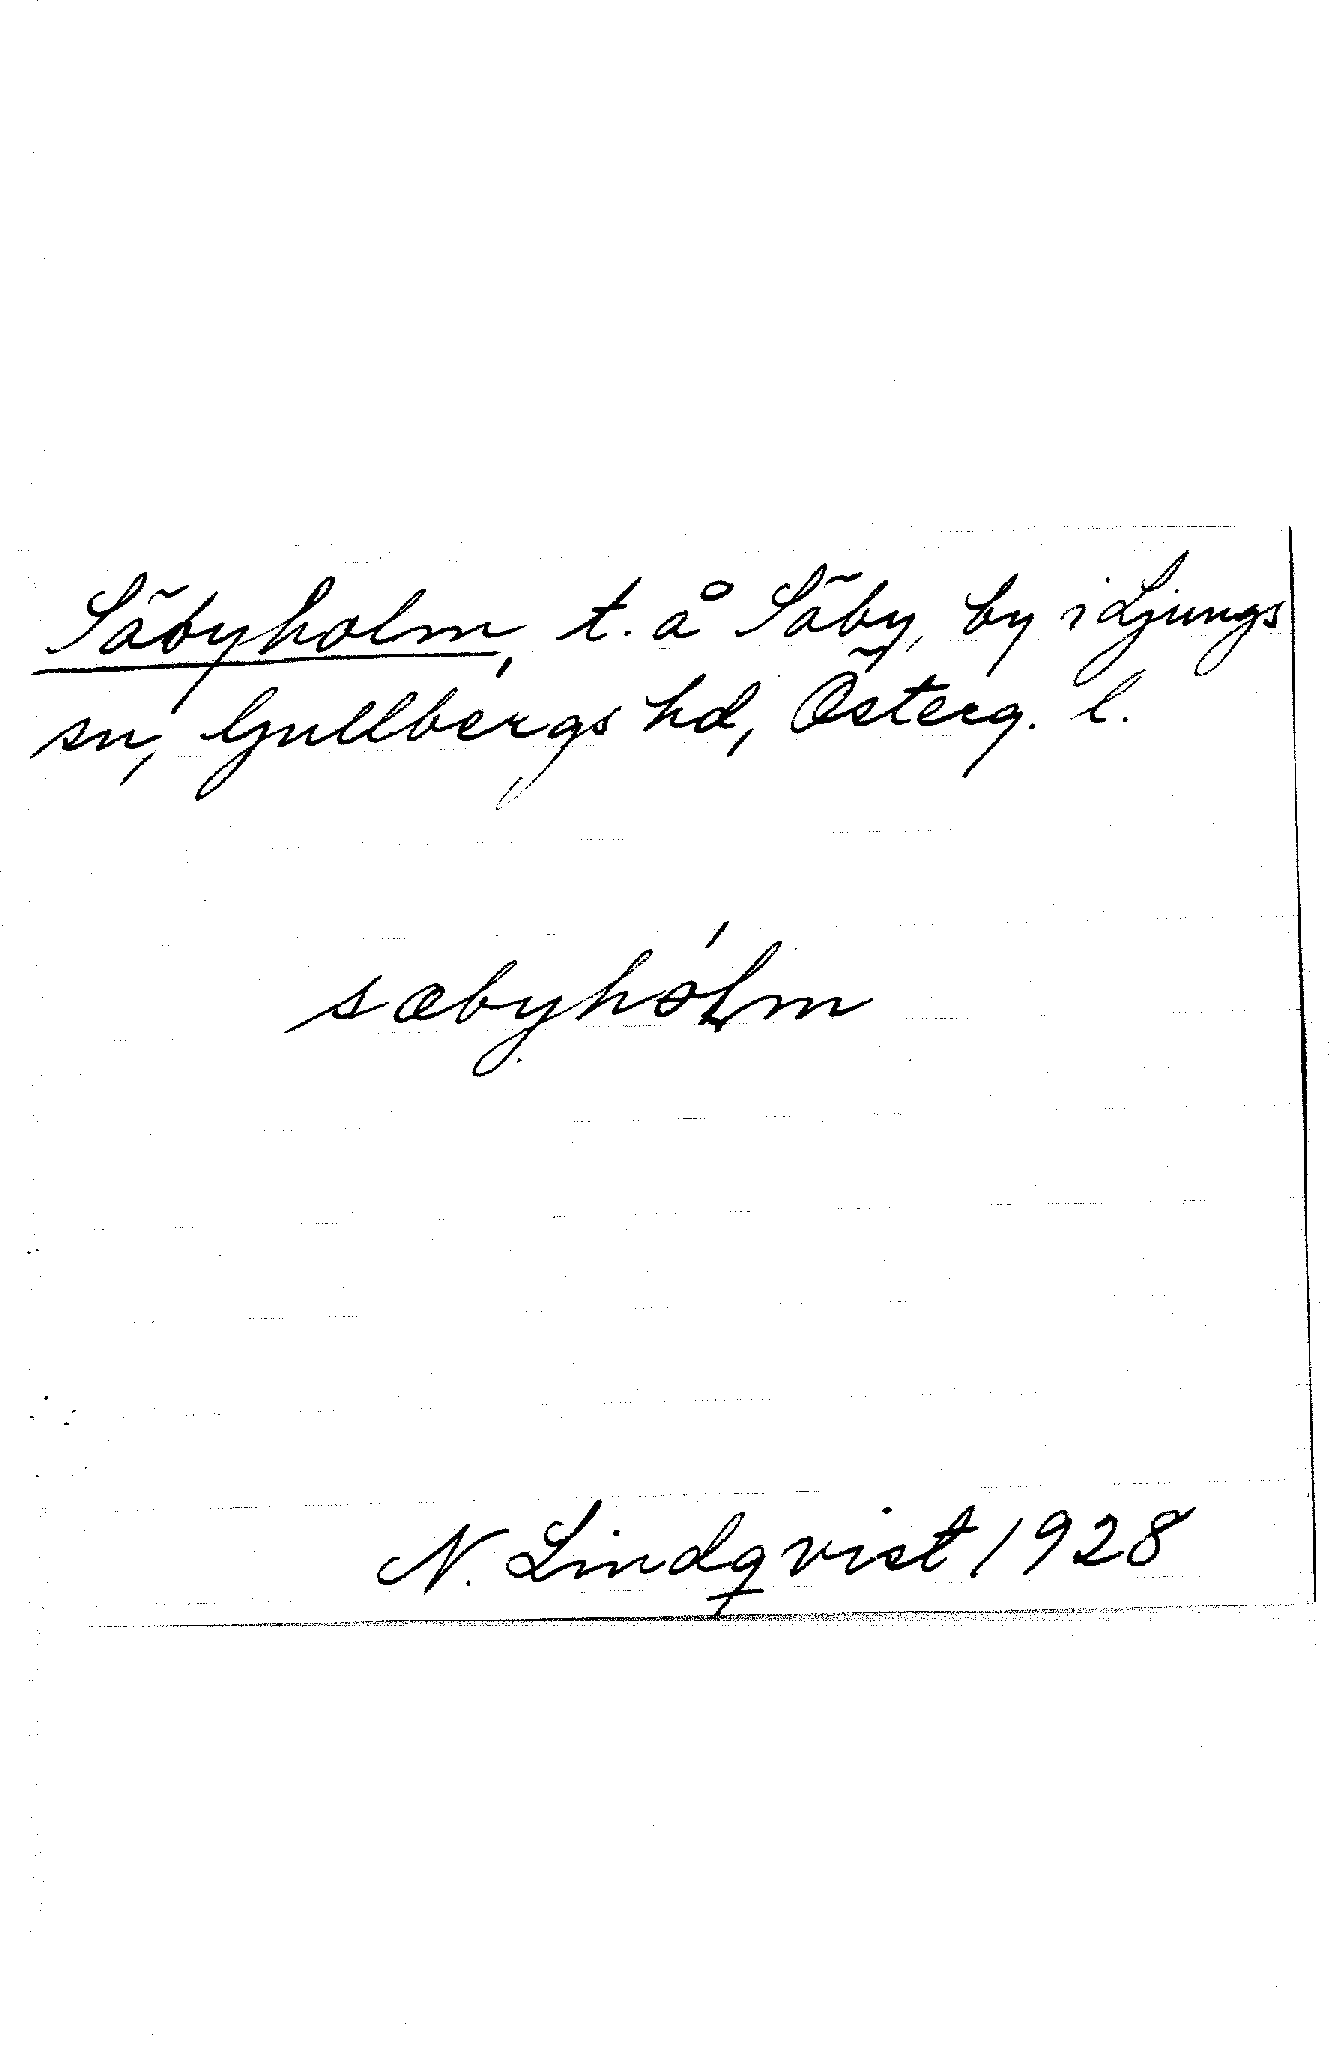 Säbyholm, t. å Säby, by i Ljungs
sn, Gullbergs hd, Österg. l.
sæbyhólm
N. Lindqvist 1928